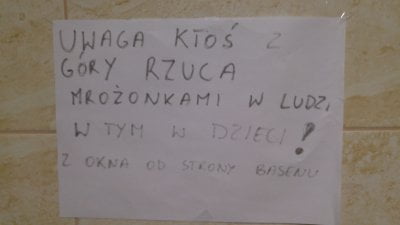 UWAGA KTOŚ Z
GÓRY RZUCA
MROŻONKAMI W LUDZI,
W TYM W DZIECI!
Z OKNA OD STRONY BASENU